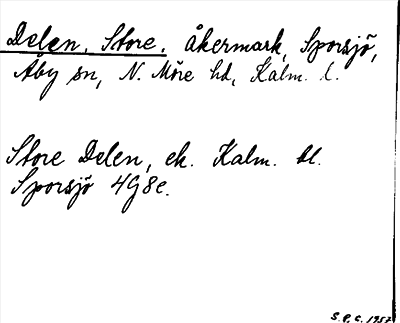 Delen, Store, åkermark, Sporsjö,
Åby sn, N. Möre hd, Kalm. l.
Store Delen, ek. Kalm. bl.
Sporsjö 4G8e.
S.P.C. 1957